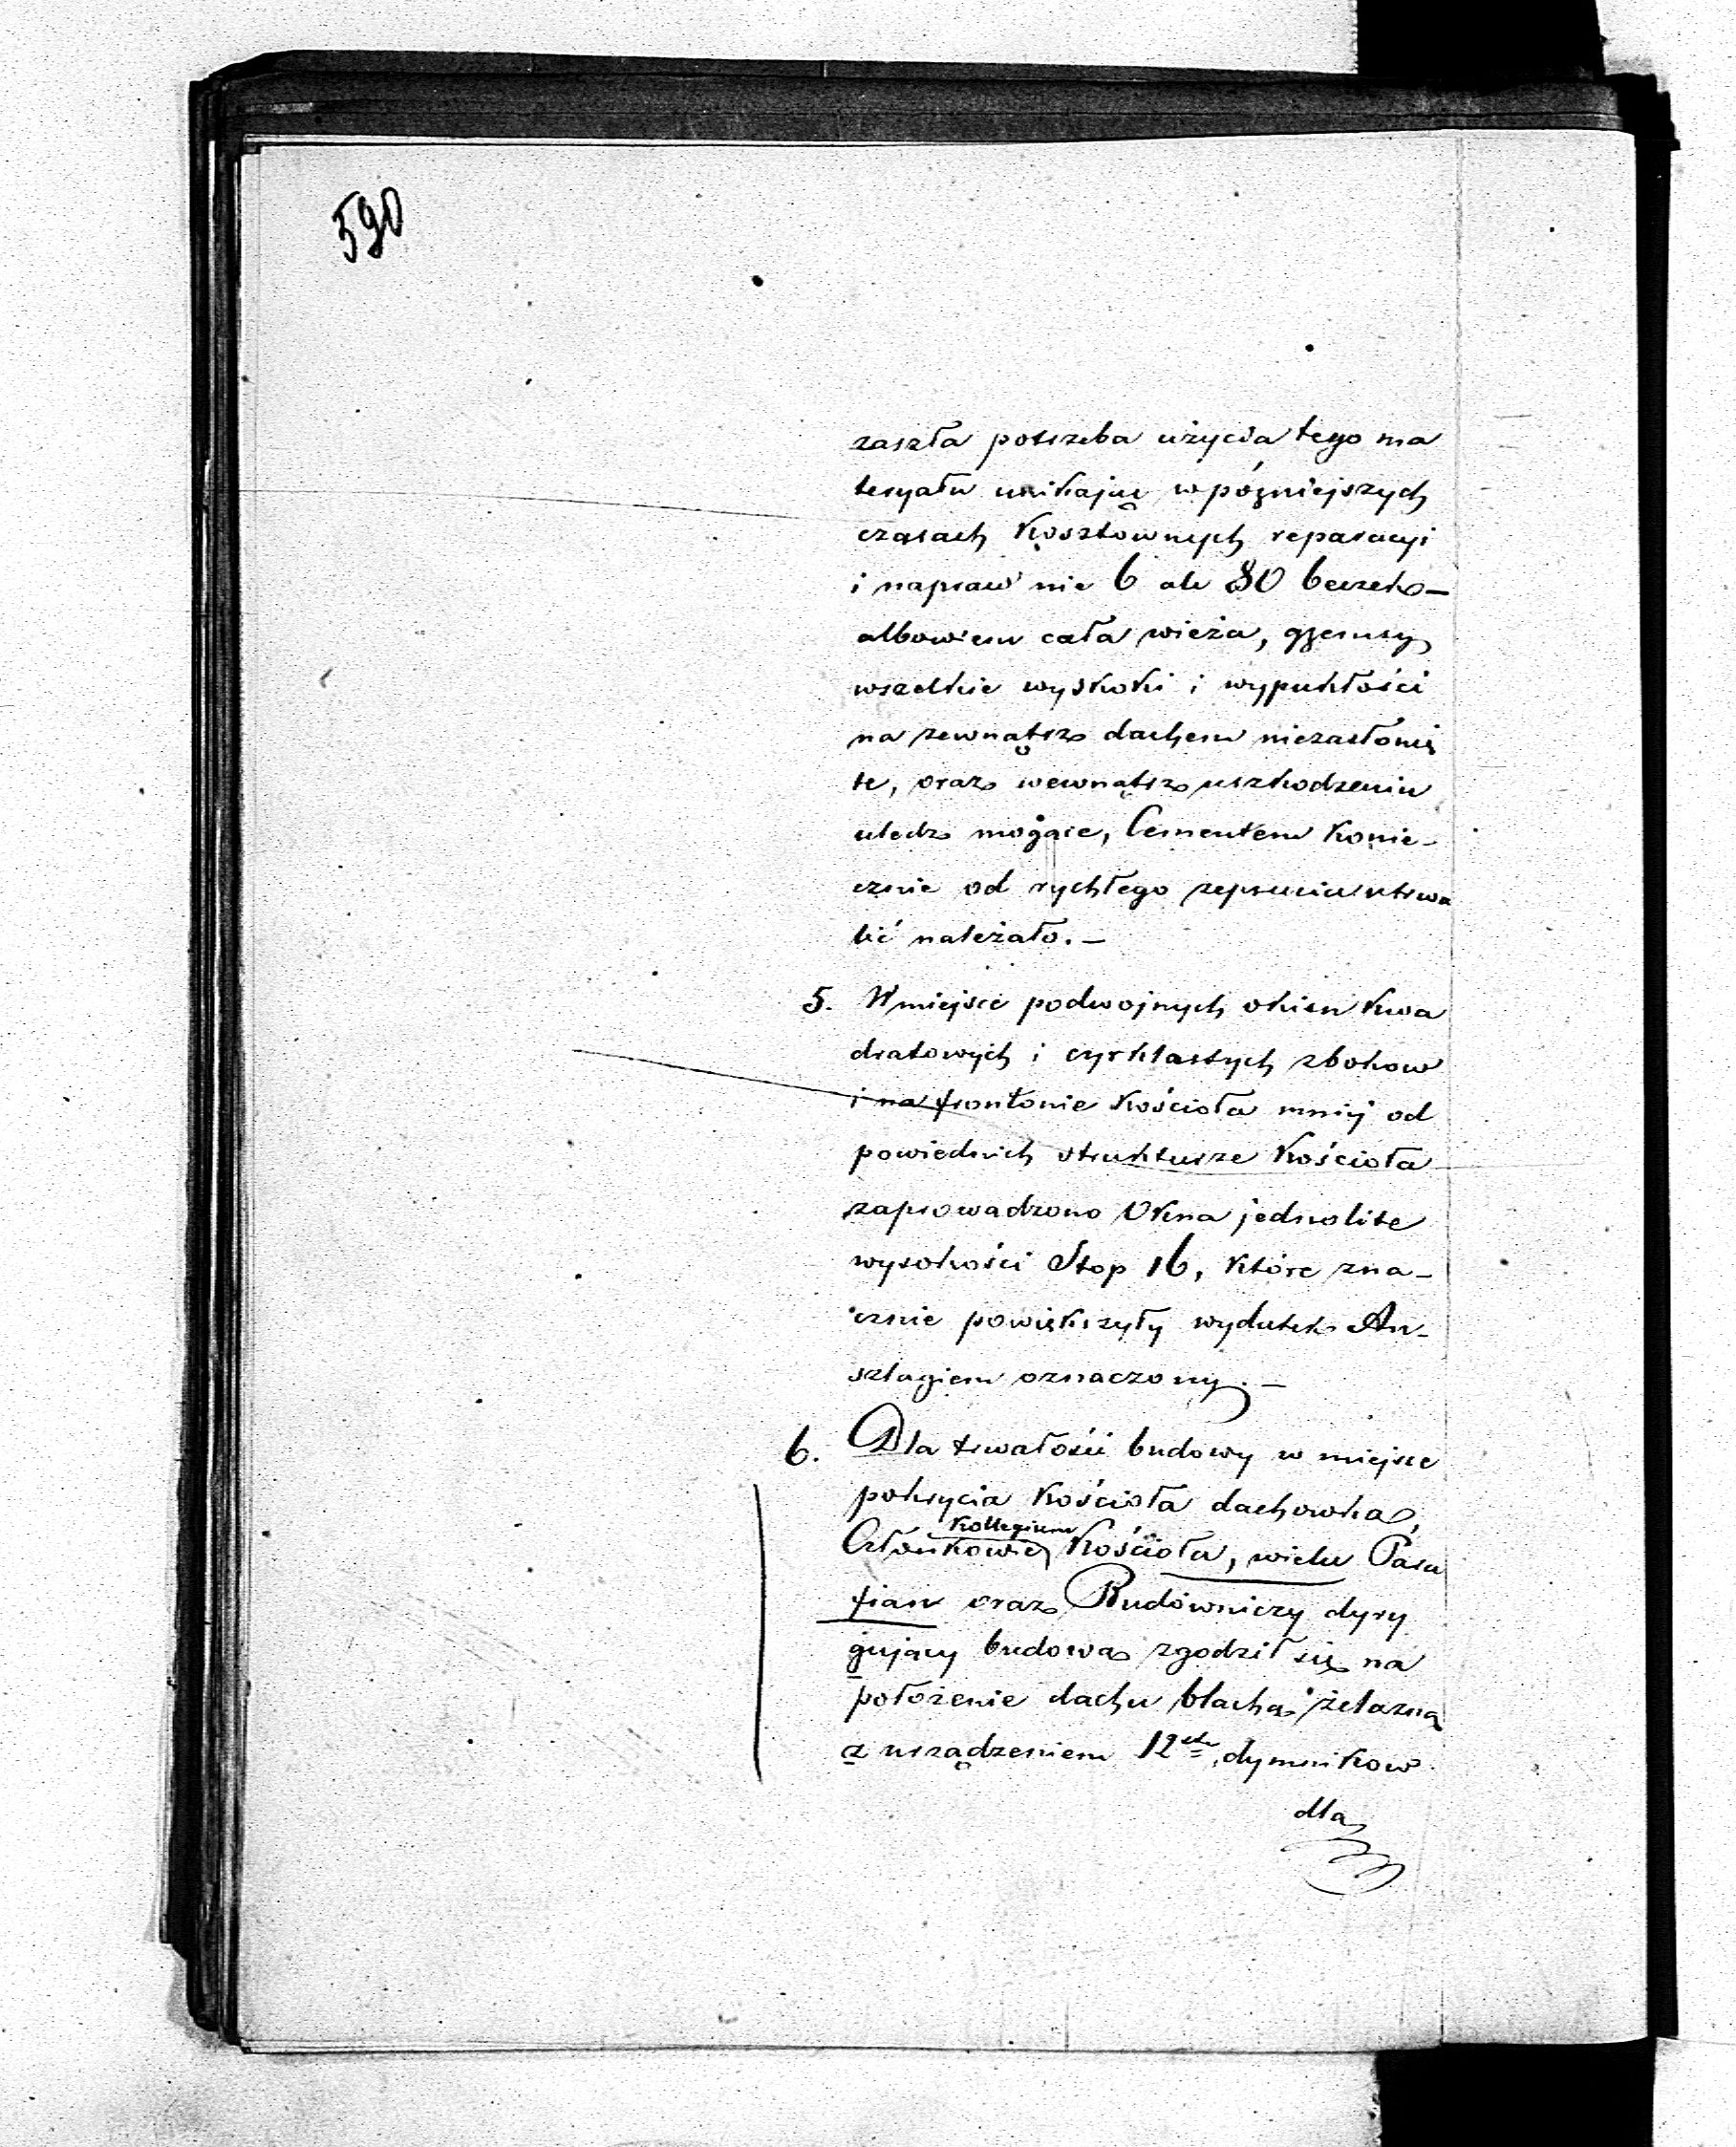 590
zaszła potrzeba użycia tego ma
teryału unikając w późniejszych
czasach kosztownych reparacyi
i napraw nie 6 ale 80 beczek –
albowiem cała wieża, gzemsy,
wszelkie wyskoki i wypukłości
na zewnątrz dachem niezasłonię
te, oraz wewnątrz uszkodzeniu
uledz mogące, Cementem konie-
cznie od rychłego zepsucia utrwa
lić należało. –
5. W miejsce podwojnych okien kwa
dratowych i cyrklastych zbokow
i na frontonie kościoła mniéj od
powiednich strukturze Kościoła
zaprowadzono Okna jednolite
wysokości Stop 16, które zna-
cznie powiększyły wydatek An-
szlagiem oznaczony. –
6. Dla trwałości budowy w miejsce
pokrycia kościoła dachowką,
Kollegium
Członkowie Kościoła, wielu Para
fian oraz Budowniczy dyry
gujący budową zgodził się na
położenie dachu blachą żelazną
z urządzeniem 12stu dymnikow
dla